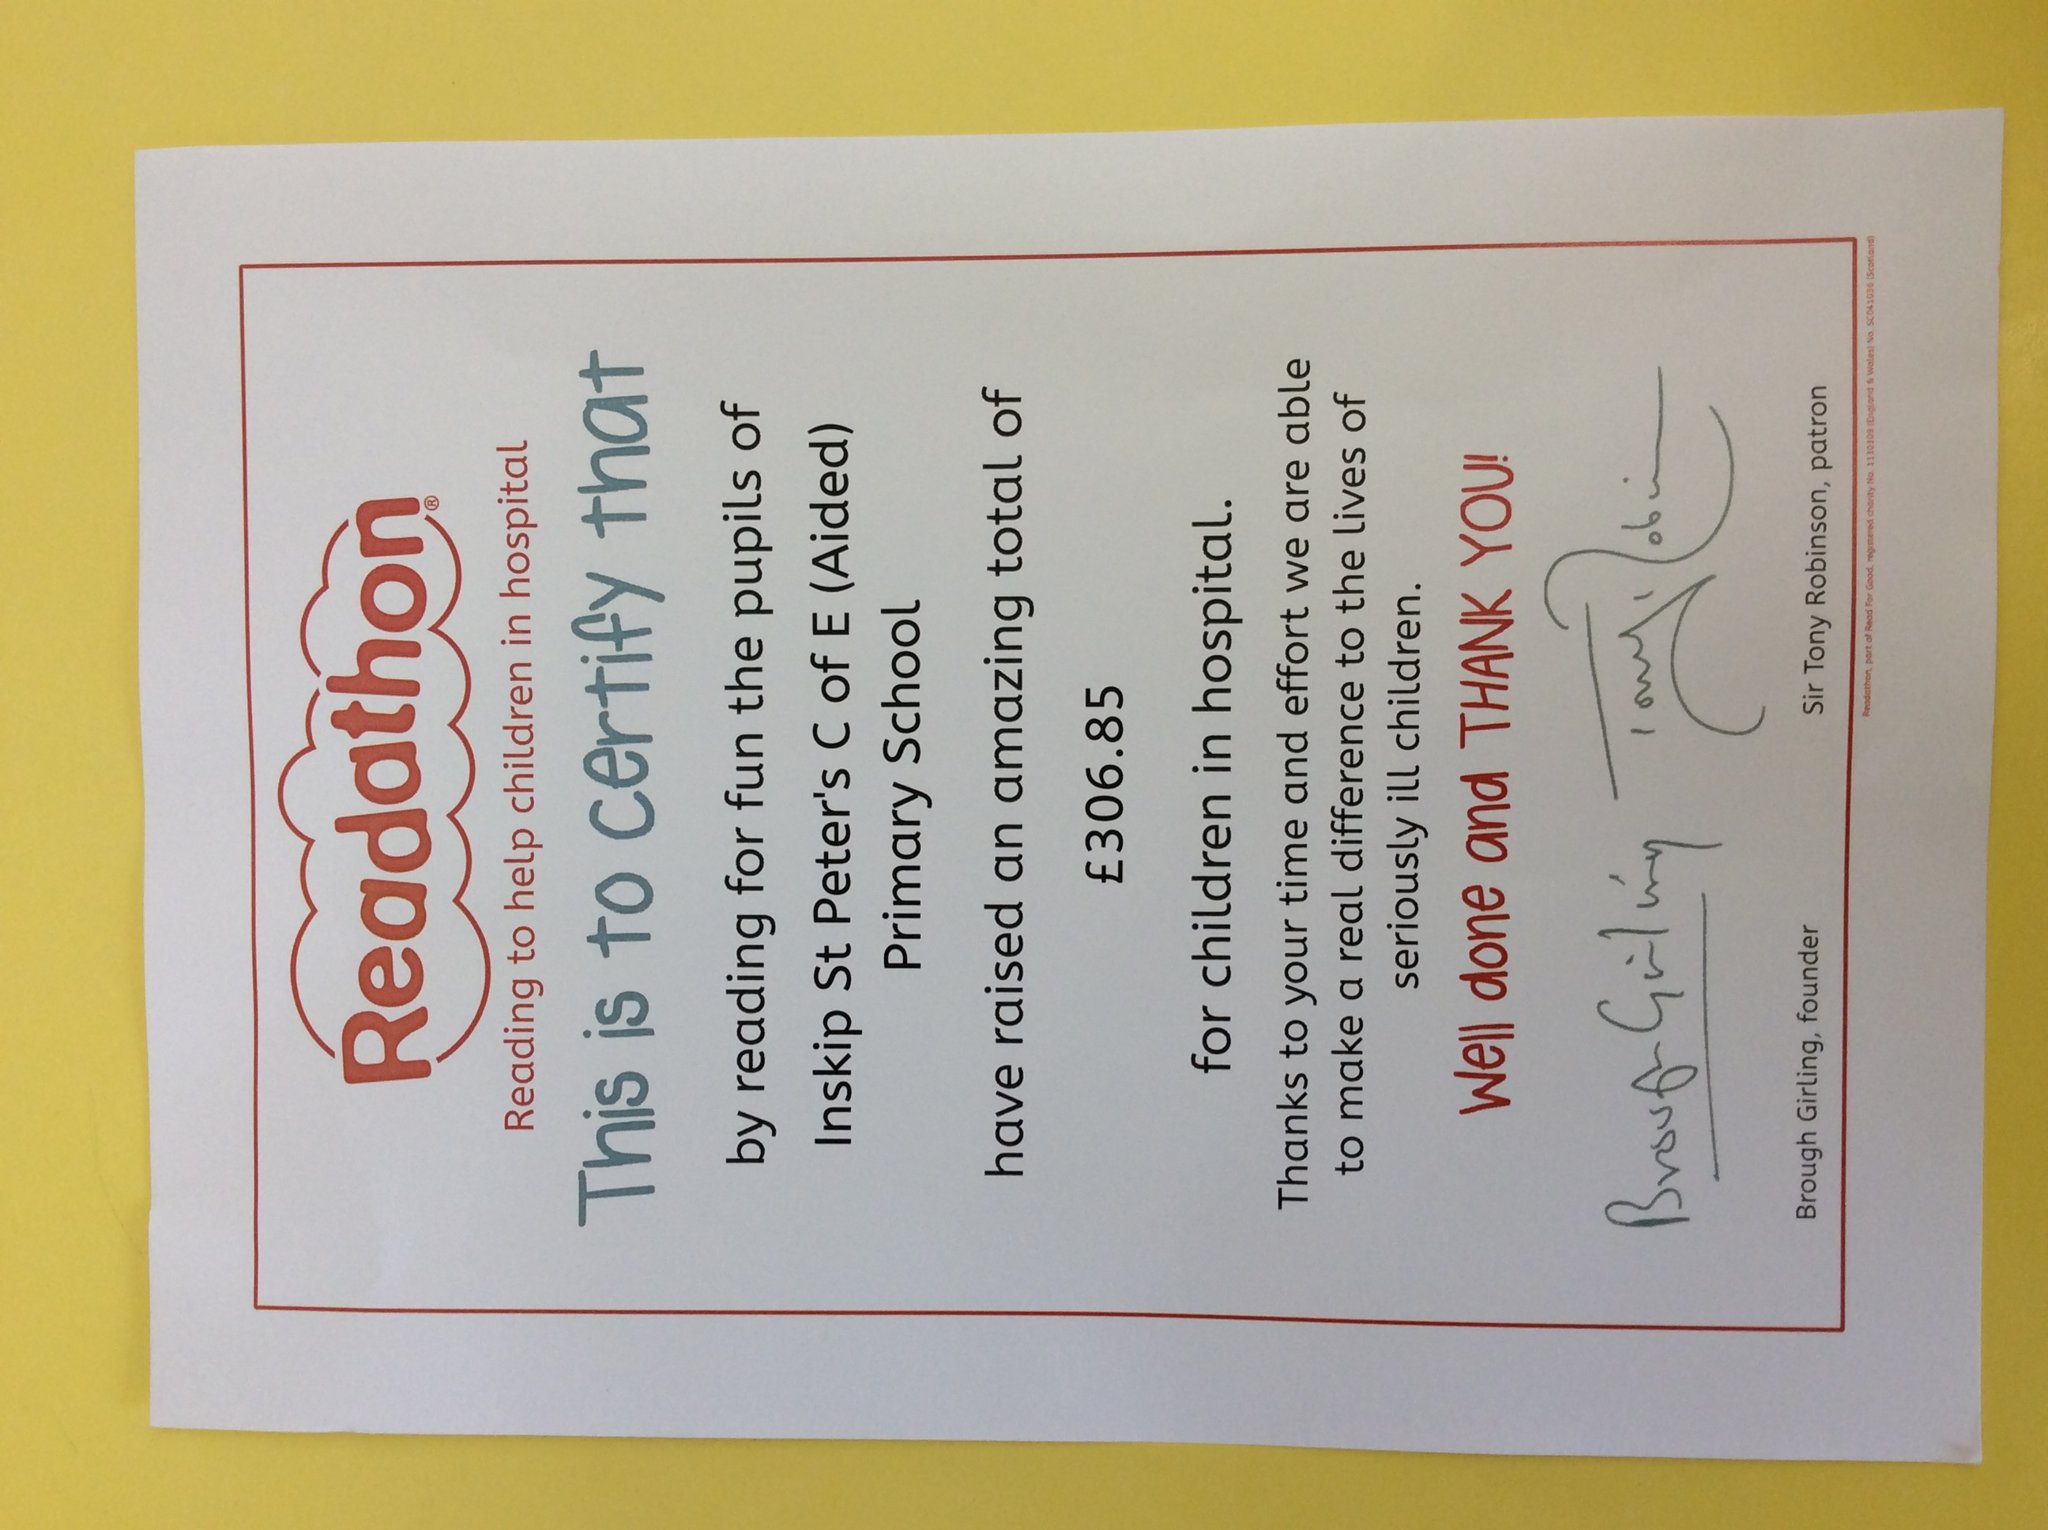 Readathon®
Reading to help children in hospital
This is to certify that
by reading for fun the pupils of
Inskip St Peter's C of E (Aided)
Primary School
have raised an amazing total of
£306.85
for children in hospital.
Thanks to your time and effort we are able
to make a real difference to the lives of
seriously ill children.
Well done and THANK YOU!
Brough Girling Tony Robinson
Brough Girling, founder Sir Tony Robinson, patron
Readathon, part of Read For Good, registered charity No. 1130309 (England & Wales) No. SC041036 (Scotland)